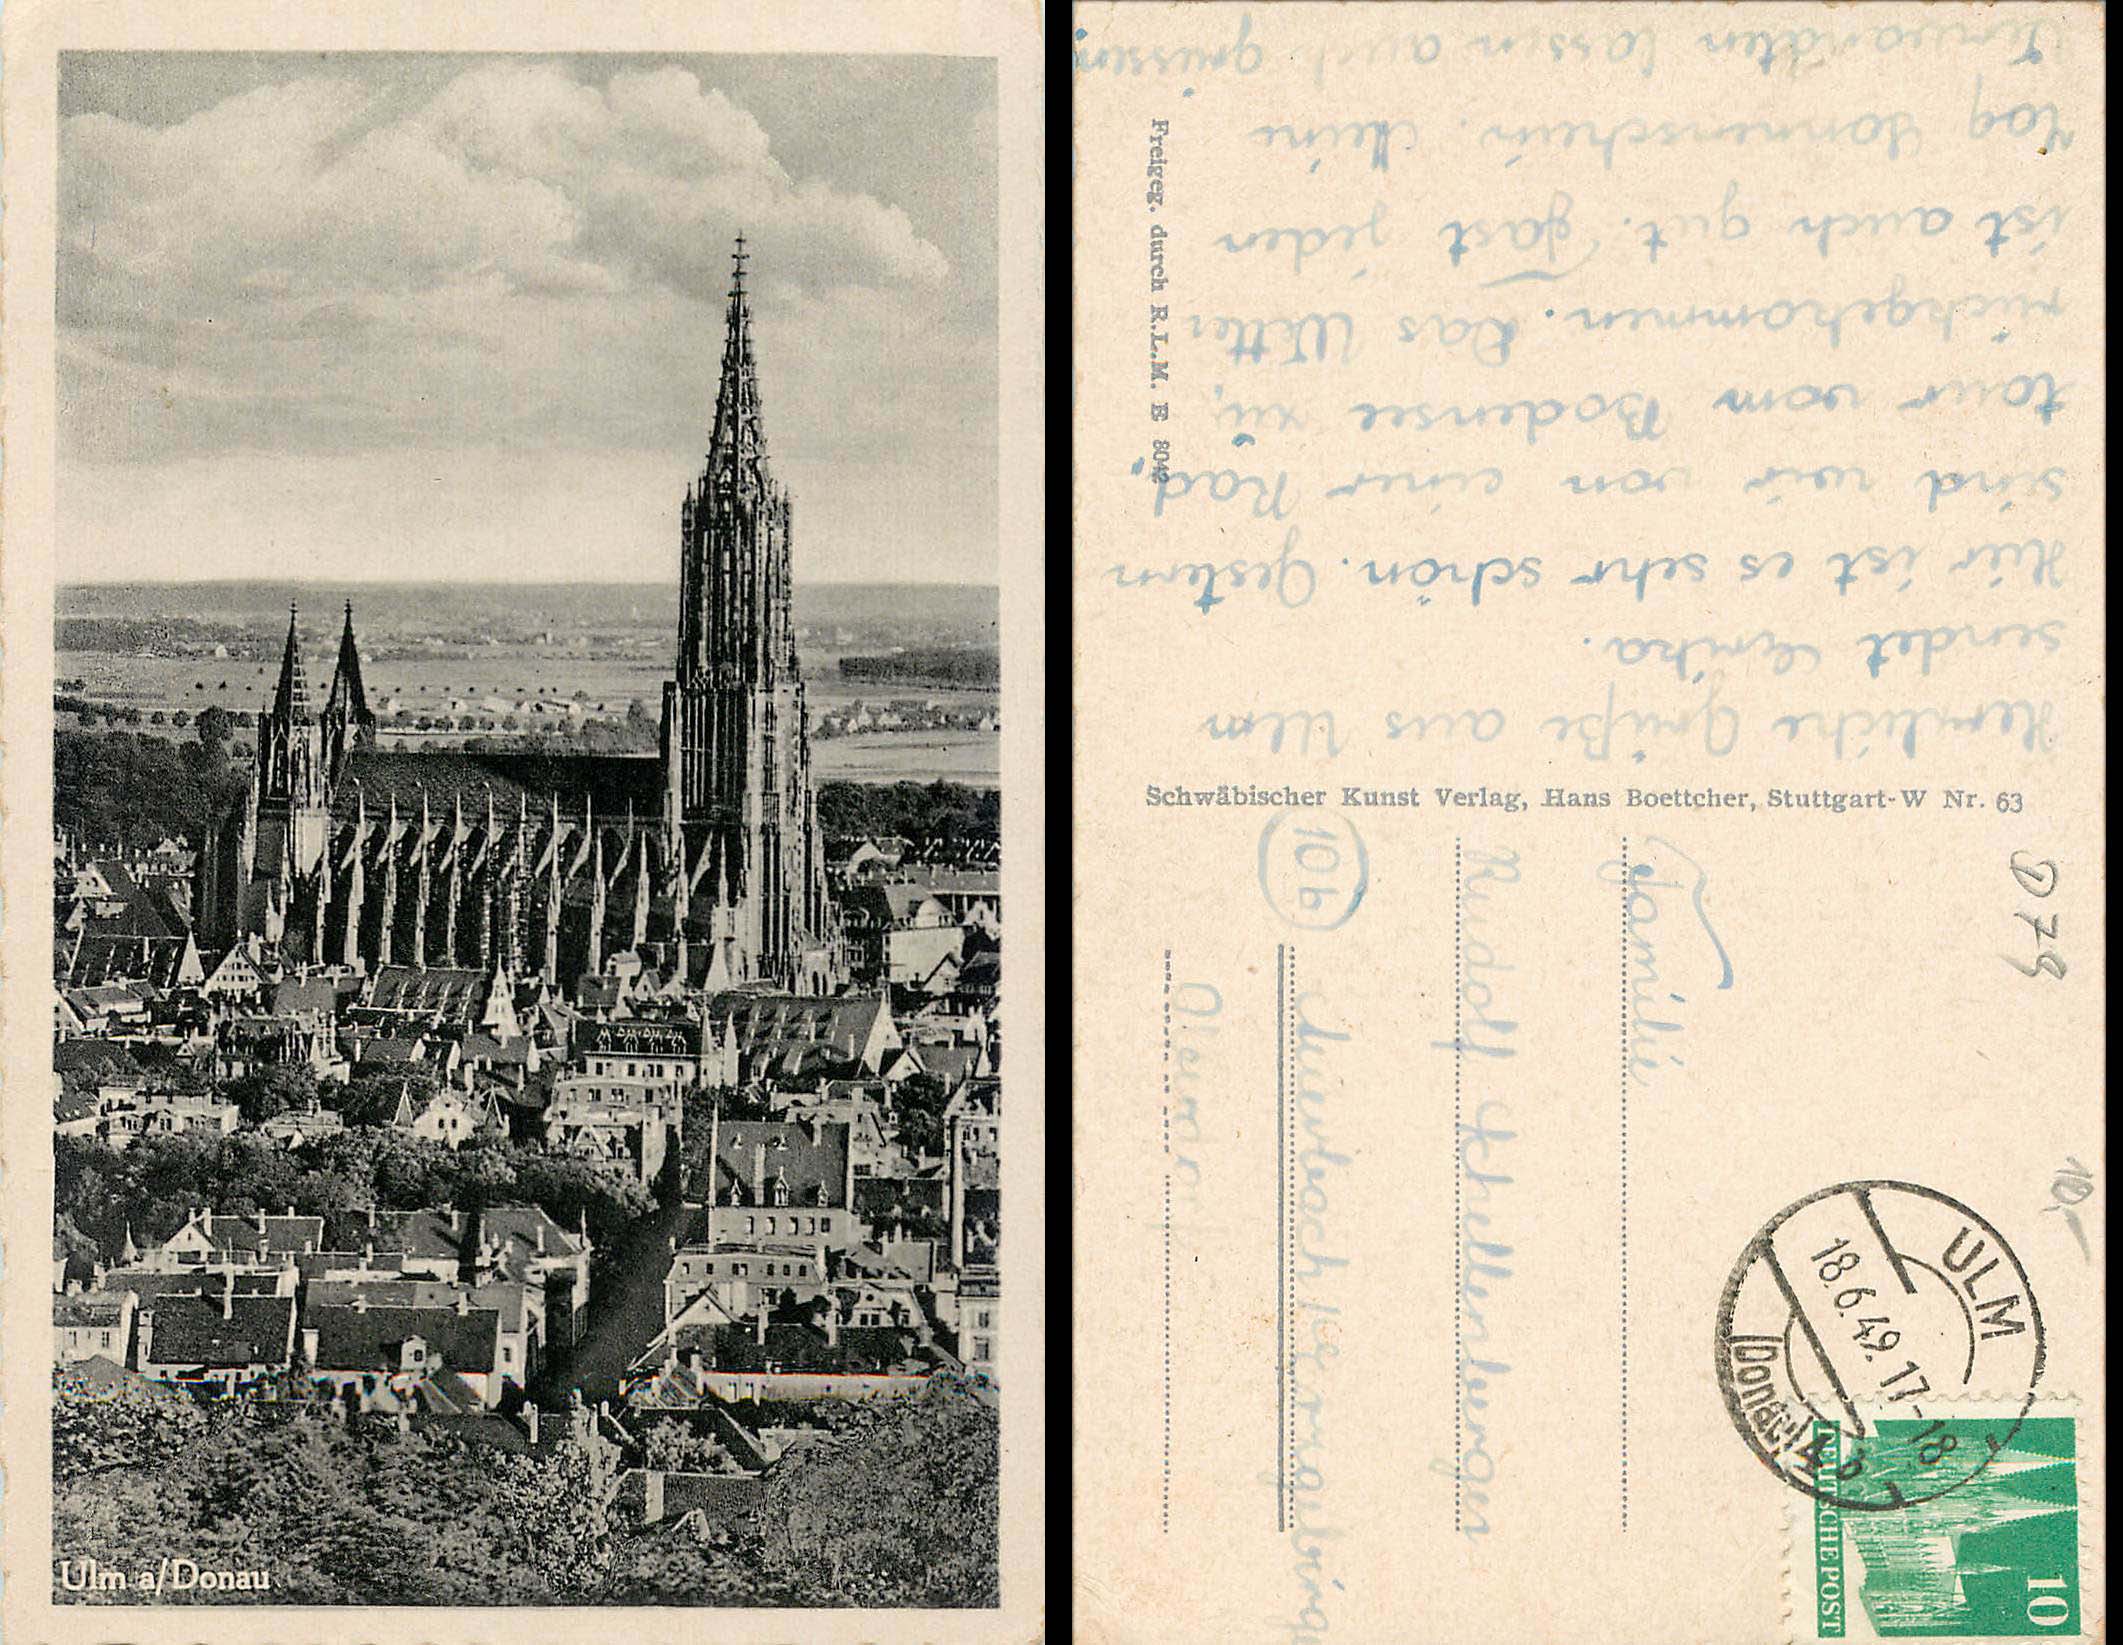 Ulm a/Donau
Herzliche Grüße aus Ulm
sendet Annika.
Hier ist es sehr schön. Gestern
sind wir von einer Rad,
tour vom Bodensee zu,
rückgekommen. Das Wetter
ist auch gut. Fast jeden
Tag Sonnenschein. Meine
Verwandten lassen auch grüssen
Freigeg. durch R.L.M. E 8042
Schwäbischer Kunst Verlag, Hans Boettcher, Stuttgart-W Nr. 63
D 79
10,-
ULM
18.6.49.17-18
(Donau) 4
b
10
DEUTSCHE POST
Familie
Rudolf Schellenberger
10b